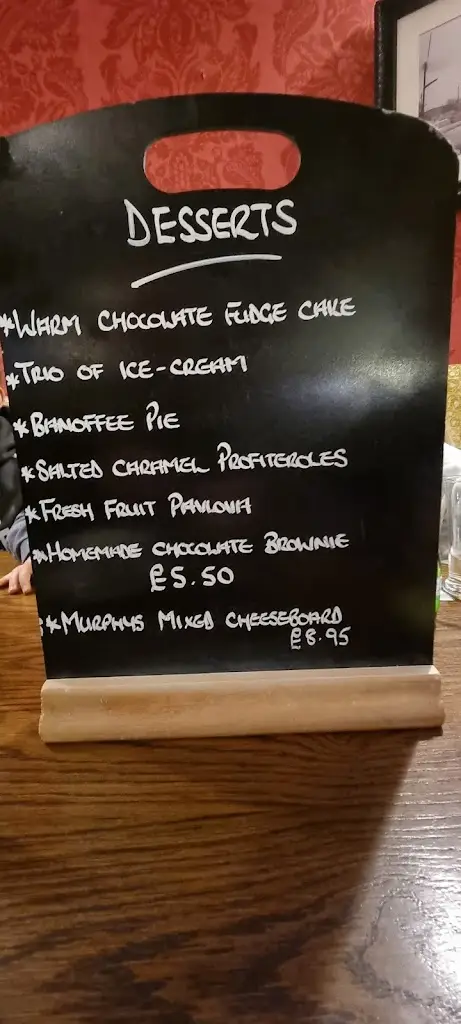 DESSERTS
*WARM CHOCOLATE FUDGE CAKE
*TRIO OF ICE-CREAM
*BANOFFEE PIE
*SALTED CARAMEL PROFITEROLES
*FRESH FRUIT PAVLOVA
*HOMEMADE CHOCOLATE BROWNIE
£5.50
*MURPHYS MIXED CHEESEBOARD
£8.95